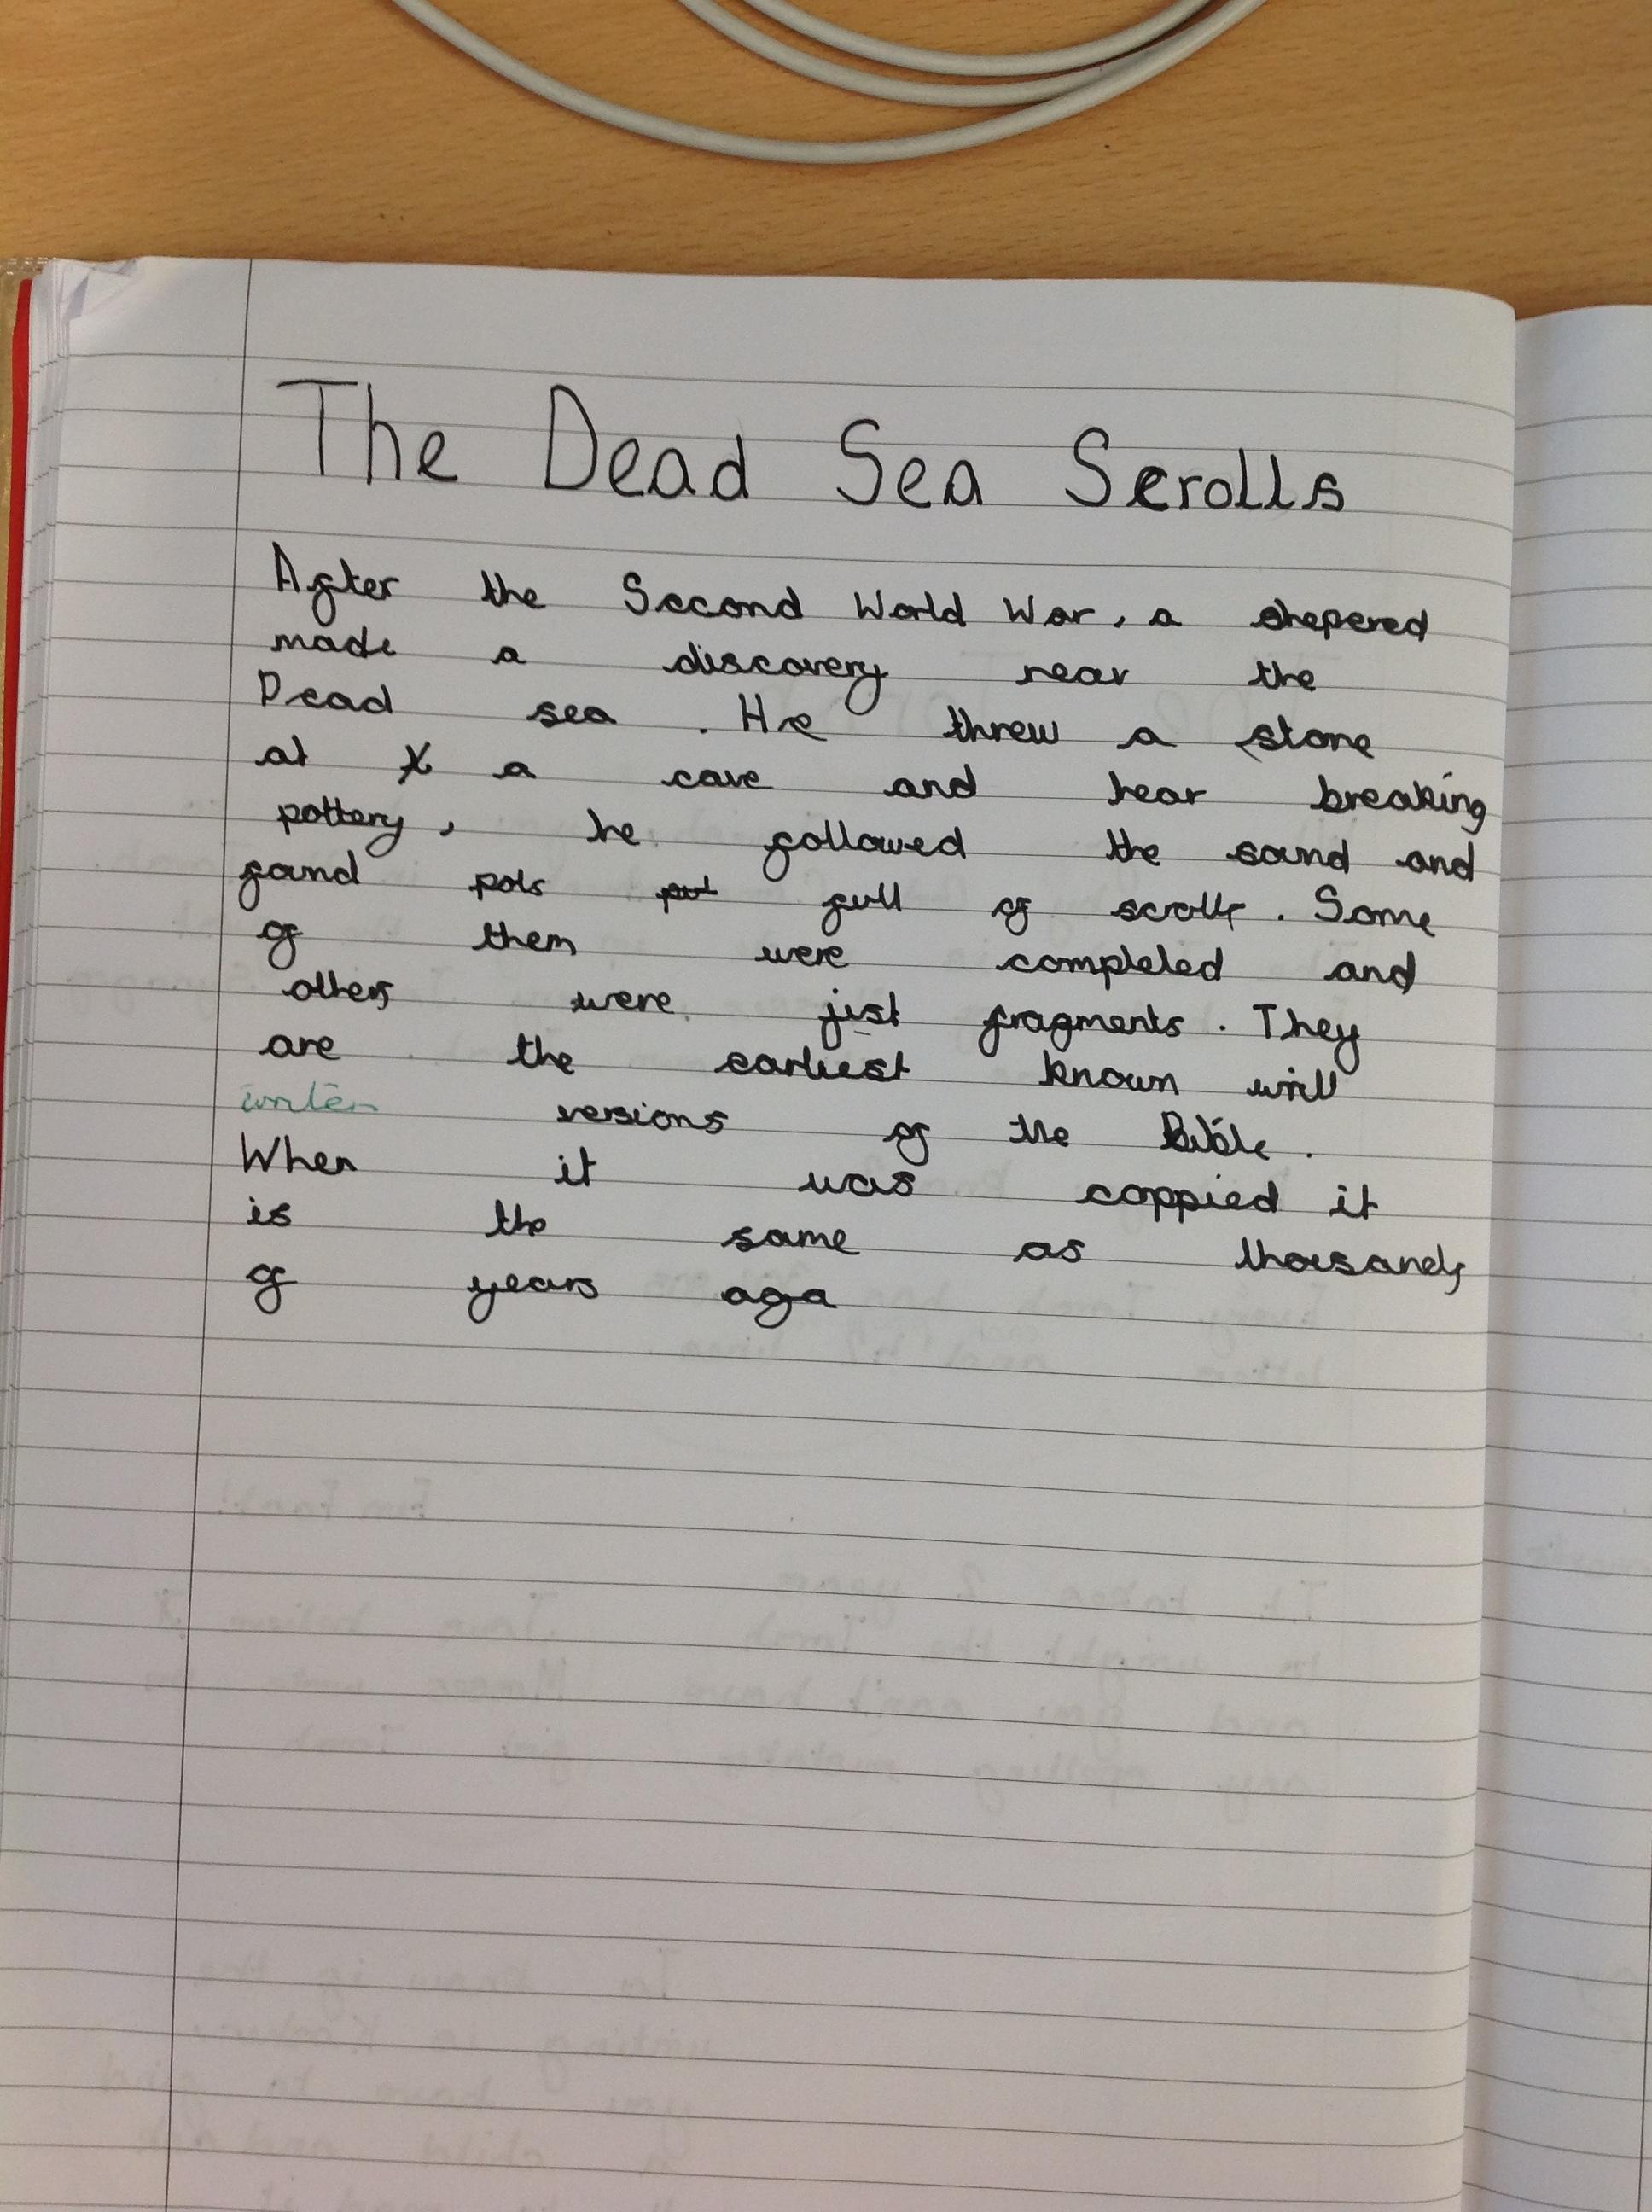 The Dead Sea Scrolls
After the Second World War, a shepered
made a discovery near the
Dead sea. He threw a stone
at a cave and hear breaking
pottery, he followed the sound and
found pots put full of scrolls. Some
of them were completed and
others were just fragments. They
are the earliest known will
writen versions of the Bible.
When it was coppied it
is the same as thousands
of years aga